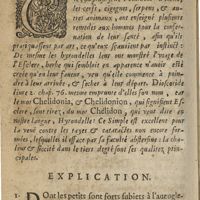 les cerfs, cigognes, serpens, & au-
tres animaux, ont enseigné plusieurs
remedes aux hommes pour la conser-
uation de leur santé, afin qu'ils
pratiquassent par art, ce qu'eux sçauoient par instinct.
De mesme les hyrondelles leur ont monstré l'vsage de
l'Esclere, herbe qui semble en apparence n'auoir esté
creée qu'en leur faueur, veu qu'elle commence à poin-
dre à leur arriuée, & secher à leur départ. Dioscoride
liure 2. chap. 76. mesme emprunte d'elles son nom,
le mar Chelidonia, & Chelidonion, qui signifient Es-
clere, sont tirez, du mar Chelidon, qui veut dire en
nostre langue, Hyrondelle: Ce Simple est excellent pour
la veuë contre les tayes & cataractes non encore infor-
mées, lesquelles il efface par sa faculté abstersiue: la cha-
leur & siccité dans le tiers degré sont ses qualitez prin-
cipales.
EXPLICATION.
1. DOnt les petits sont forts subiets à l'aueugle-